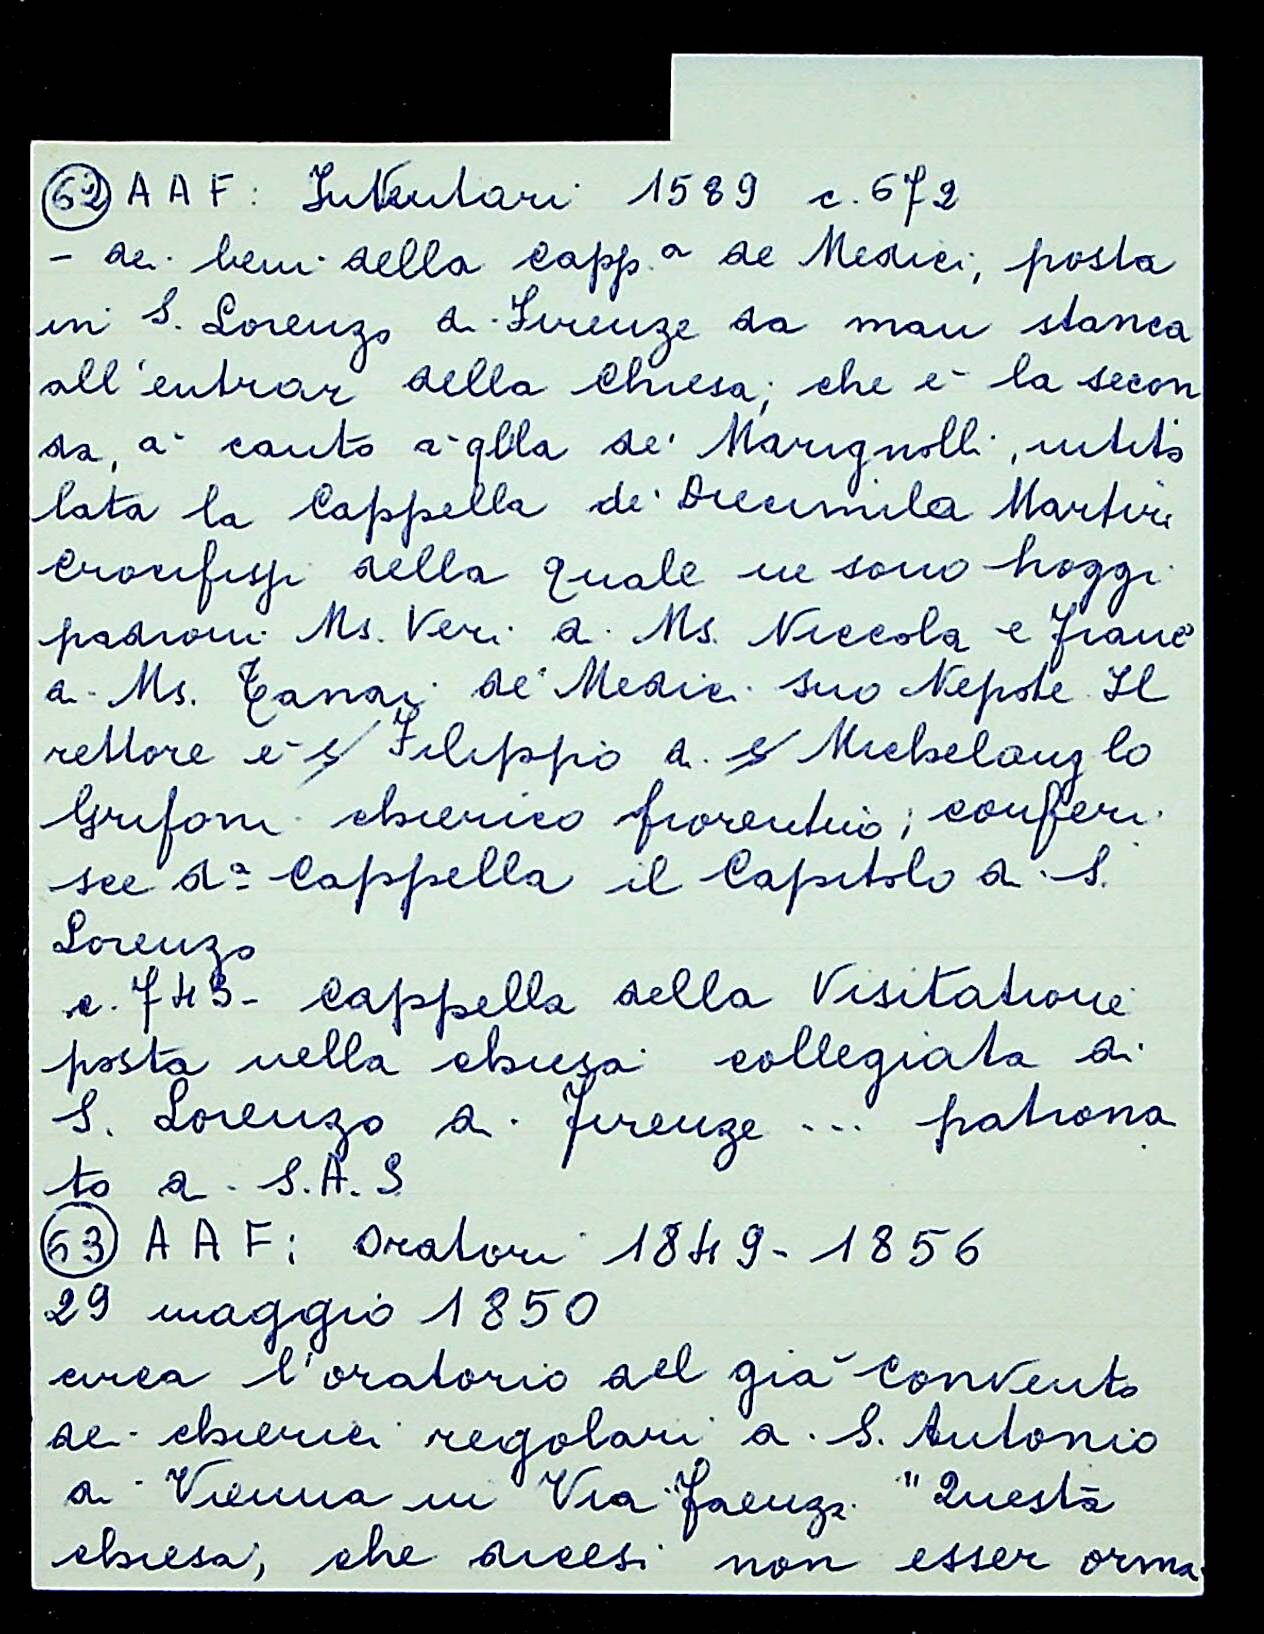 62 A A F: Inventari 1589 c. 672
- dei beni della Capp.a de Medici, posta
in S. Lorenzo di Firenze da man stanca
all'entrar della Chiesa; che è la secon
da, à canto à qlla de' Marignolli, intito
lata la Cappella de' Diecimila Martiri
Crocifissi della quale ne sono hoggi
padroni Ms. Veri di Ms. Niccola e Franc°
di Ms. Tanai de' Medici suo Nepote Il
rettore è s/ Filippo di s/ Michelang lo
Grifoni chierico fiorentino; conferi
sce d.a Cappella il Capitolo di S.
Lorenzo
c. 743- Cappella della Visitatione
posta nella chiesa collegiata di
S. Lorenzo di Firenze ... patrona
to di S.A.S
63 A A F: Oratori 1849-1856
29 maggio 1850
circa l'oratorio del già Convento
dei chierici regolari di S. Antonio
di Vienna in Via Faenza "Questa
chiesa, che dicesi non esser orma